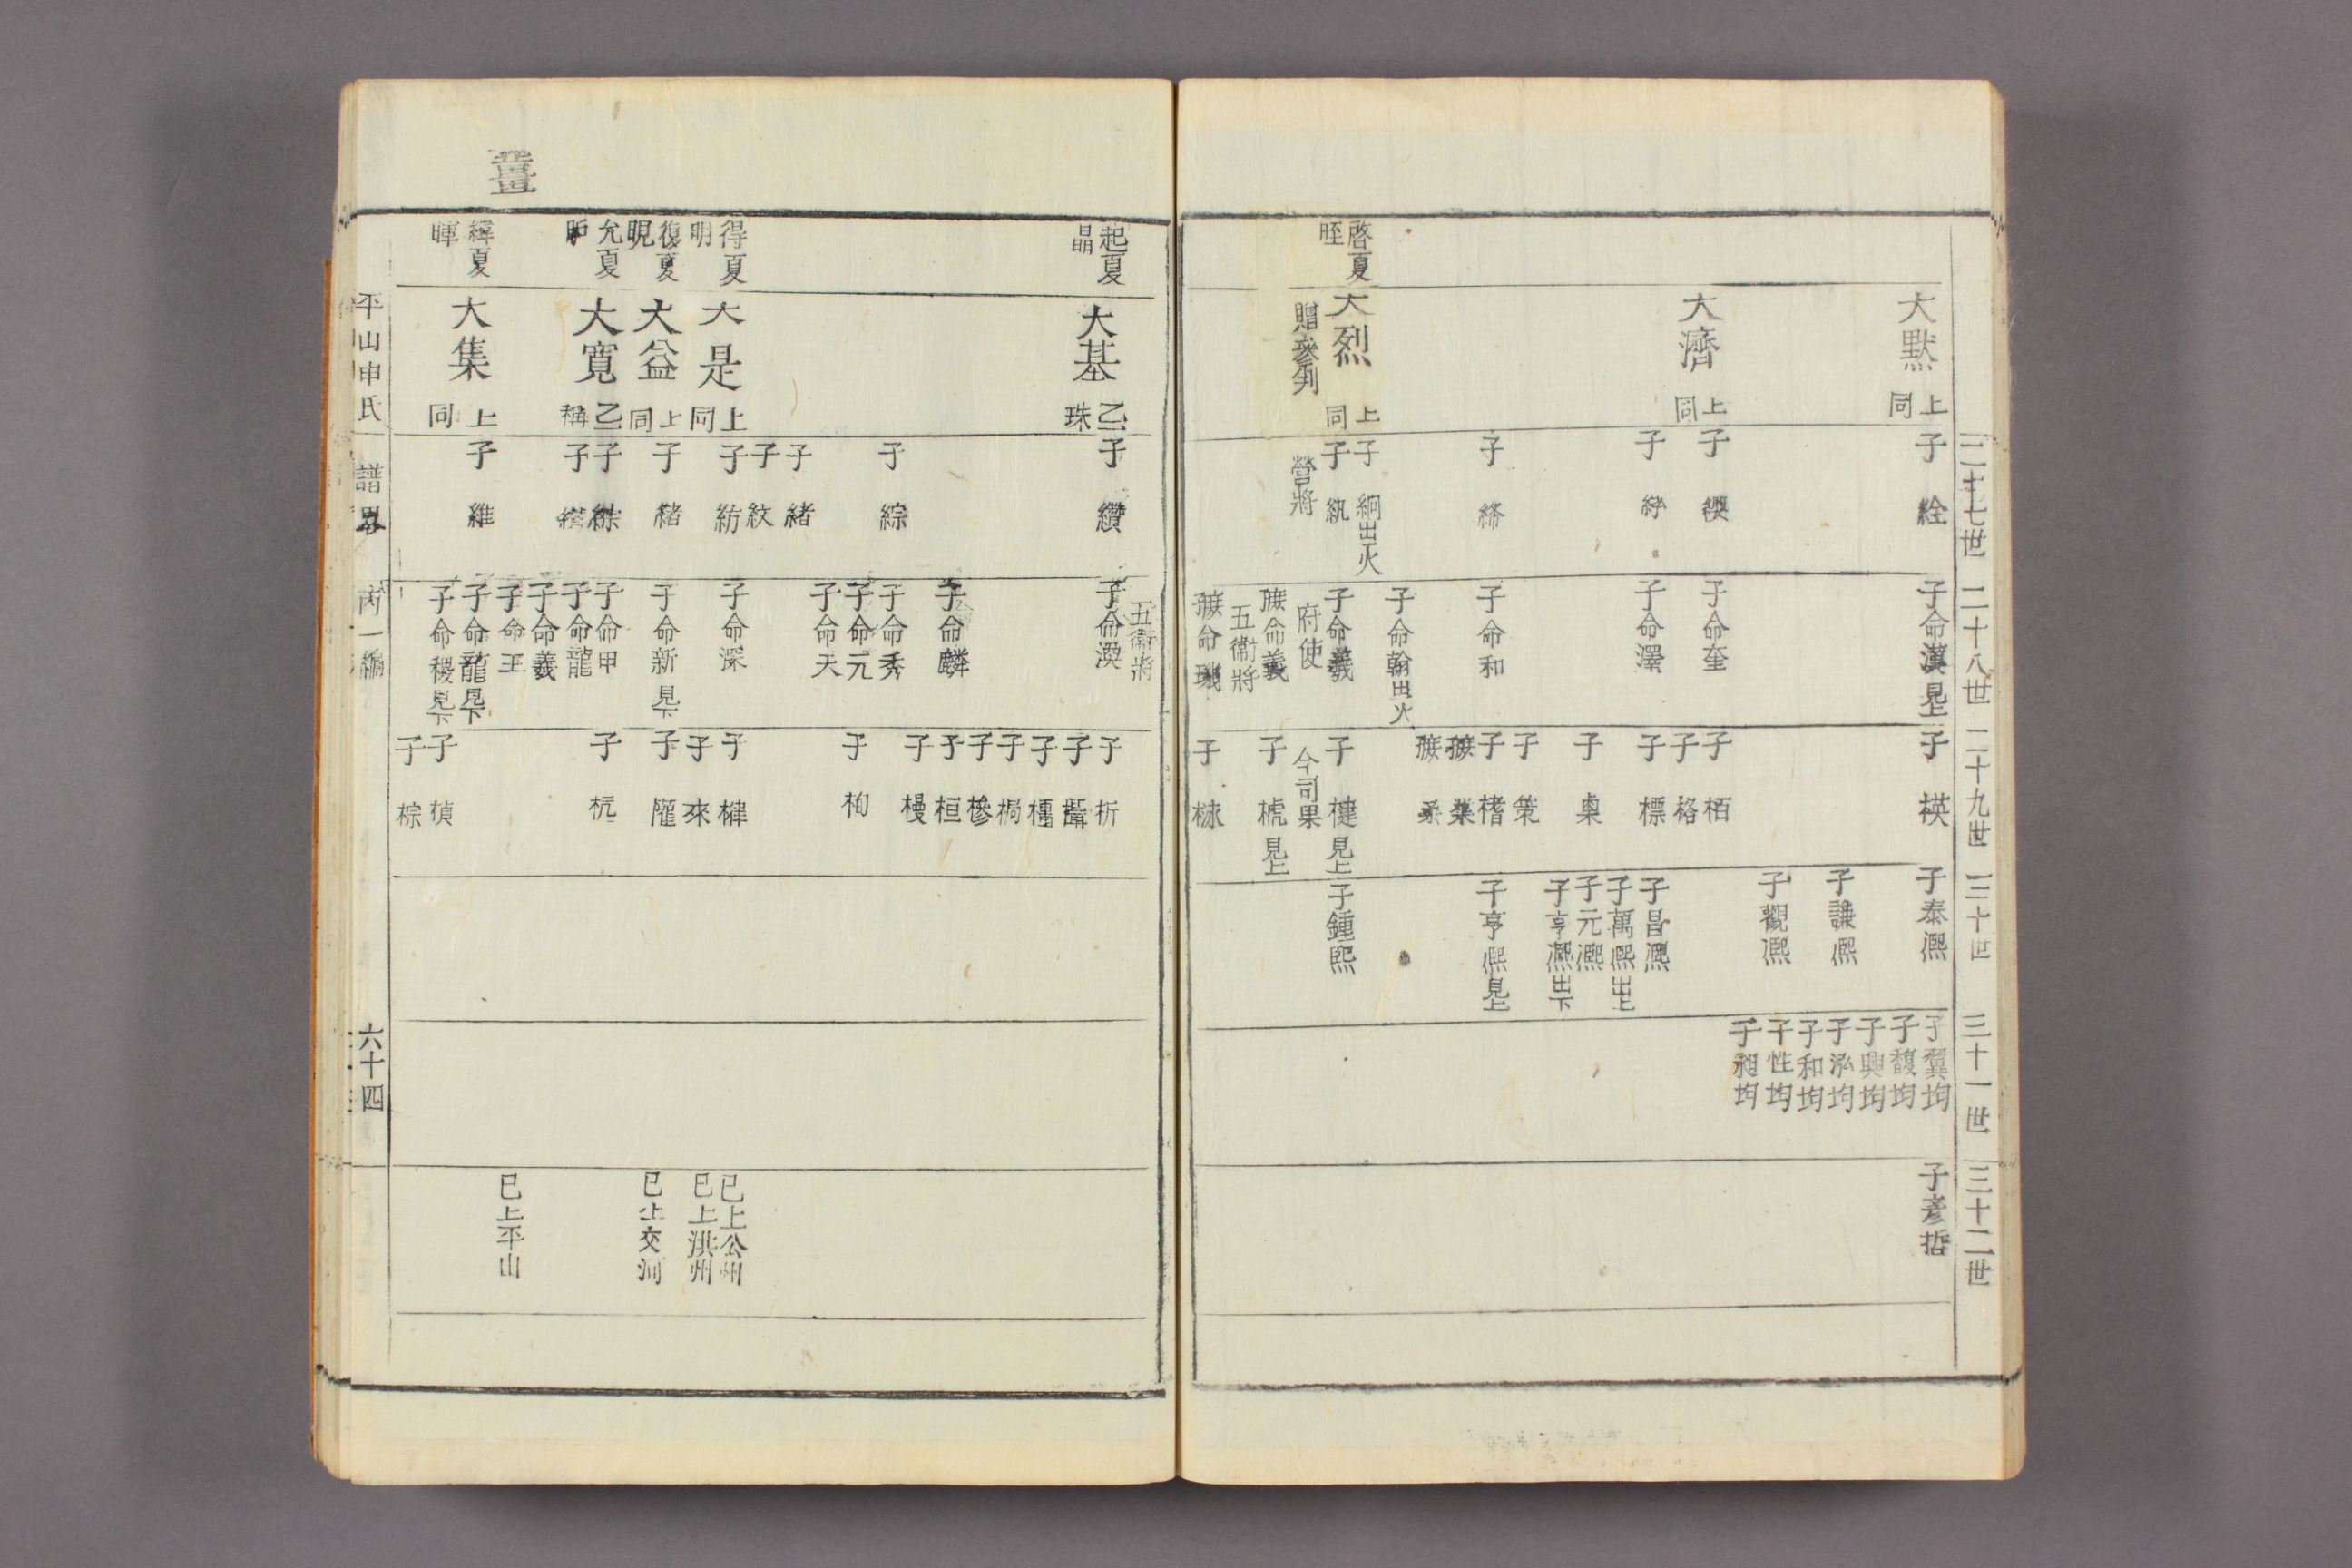 二十七世
二十八世
二十九世
三十世
三十一世
三十二世
大默
上同
大濟
上同
啓夏
晊
大烈
上同
贈參判
子絟
子緓
子綍
子締
子絅出火
子紈
營將
子命漢見上
子命奎
子命澤
子命和
子命翰出火
子命羲
府使
子命羲
五衛將
命璣
子楧
子栢
子格
子標
子槼
子策
子楮
子楗見上
今司果
子椃見上
子梂
子泰熈
子謙熈
子觀熈
子昌熈
子萬熈出上
子元熈
子亨熈出下
子亨熈見上
子鍾熙
子翼均
子馥均
子興均
子泓均
子和均
子性均
子昶均
子彦哲
起夏
晶
大基
乙珠
得夏
明
大是
上同
復夏
晛
大益
上同
允夏
大寬
乙稱
緯夏
暉
大集
上同
子纘
子綜
子緒
子紋
子紡
子緖
子綜
子維
五衛將
子命渙
子命麟
子命秀
子命元
子命天
子命深
子命新見下
子命甲
子命龍
子命羲
子命王
子命龍見下
子命稷見下
子析
子檽
子桐
子槮
子桓
子槾
子栒
子𣖕
子來
子杭
子楨
子棕
已上公州
已上洪州
已上交河
已上平山
平山申氏 譜畧 丙一編 六十四